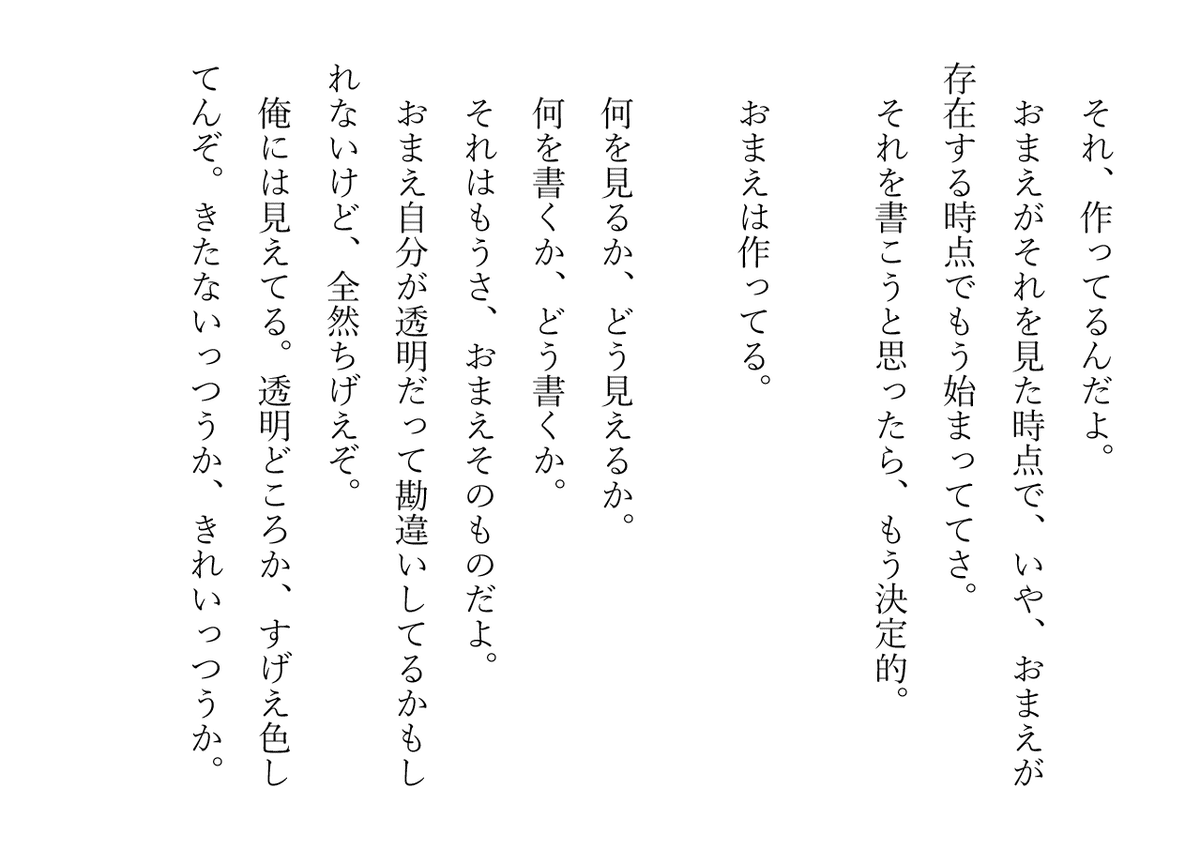 それ、作ってるんだよ。
おまえがそれを見た時点で、いや、おまえが
存在する時点でもう始まっててさ。
それを書こうと思ったら、もう決定的。
おまえは作ってる。
何を見るか、どう見えるか。
何を書くか、どう書くか。
それはもうさ、おまえそのものだよ。
おまえ自分が透明だって勘違いしてるかもし
れないけど、全然ちげえぞ。
俺には見えてる。透明どころか、すげえ色し
てんぞ。きたないっつうか、きれいっつうか。